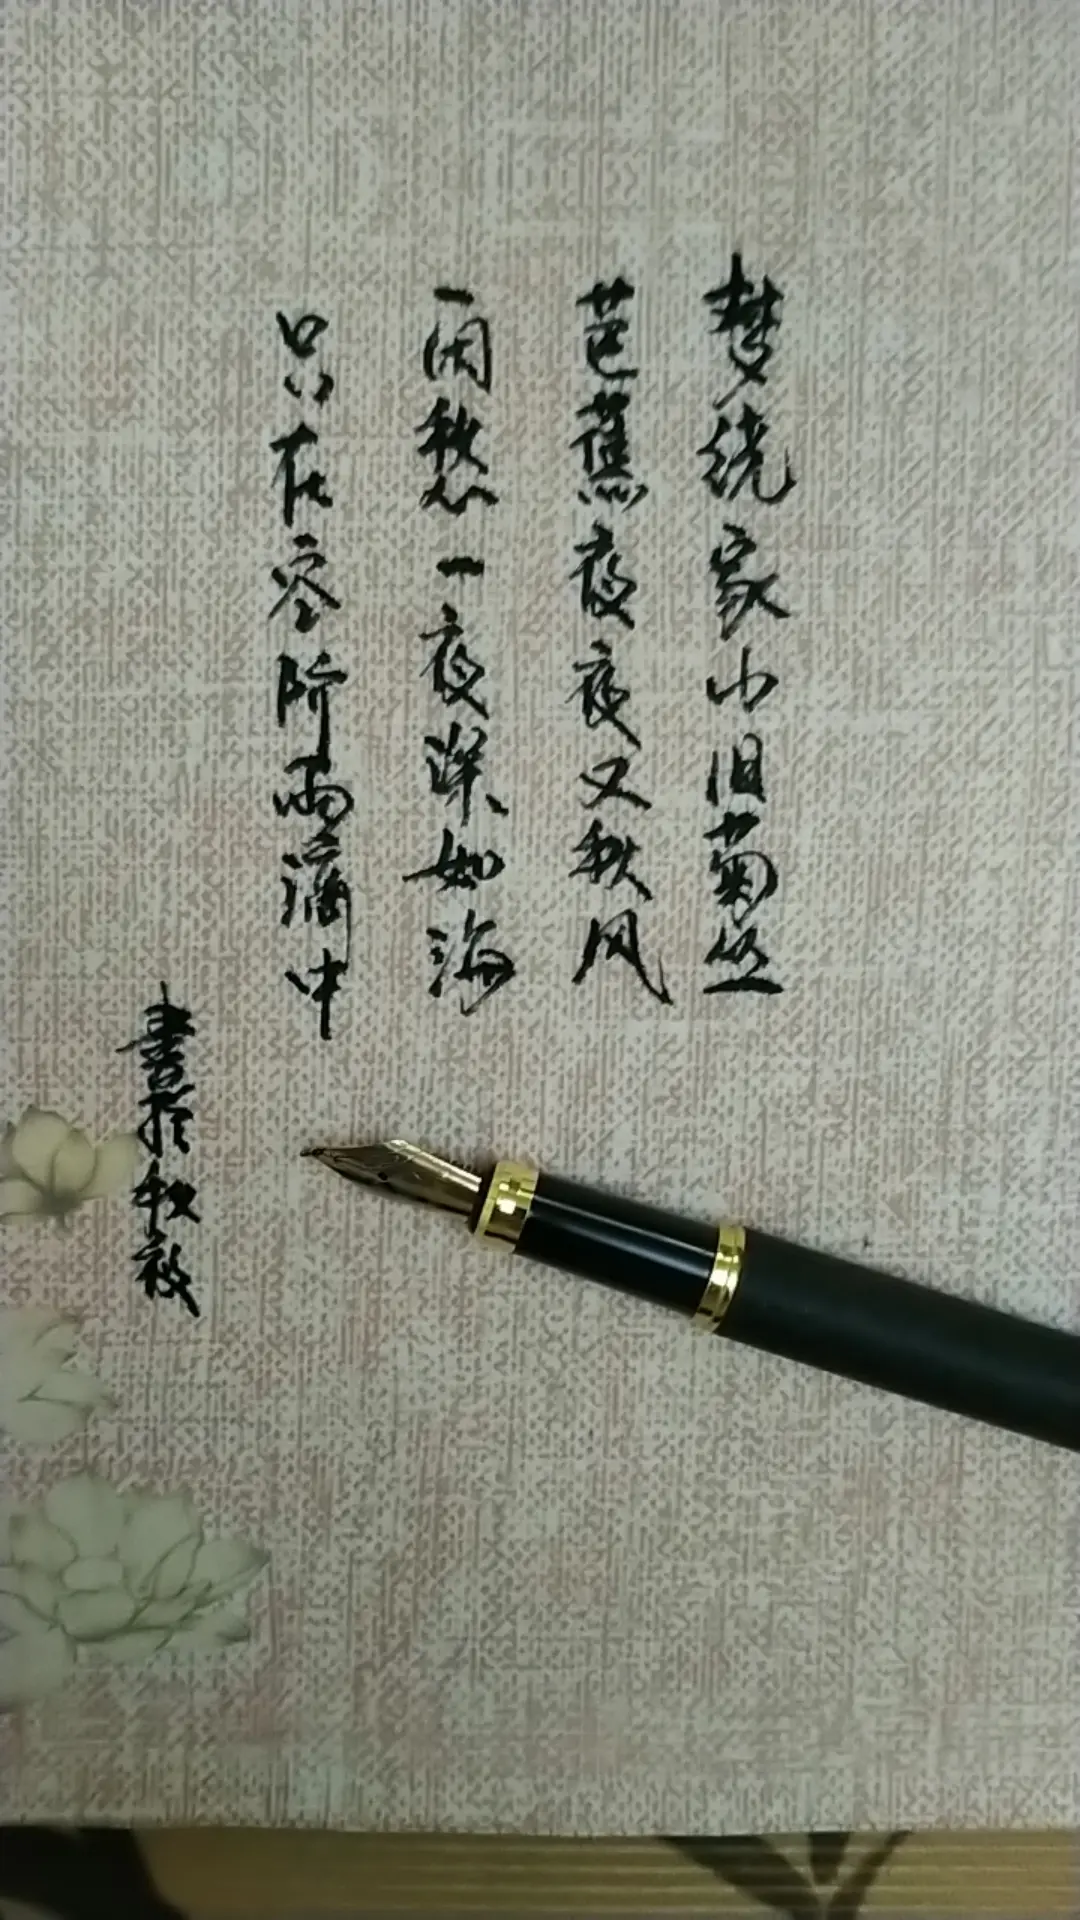 梦绕家山旧菊丛
芭蕉夜夜又秋风
一闲愁一夜深如海
只在空阶雨滴中
書於秋夜